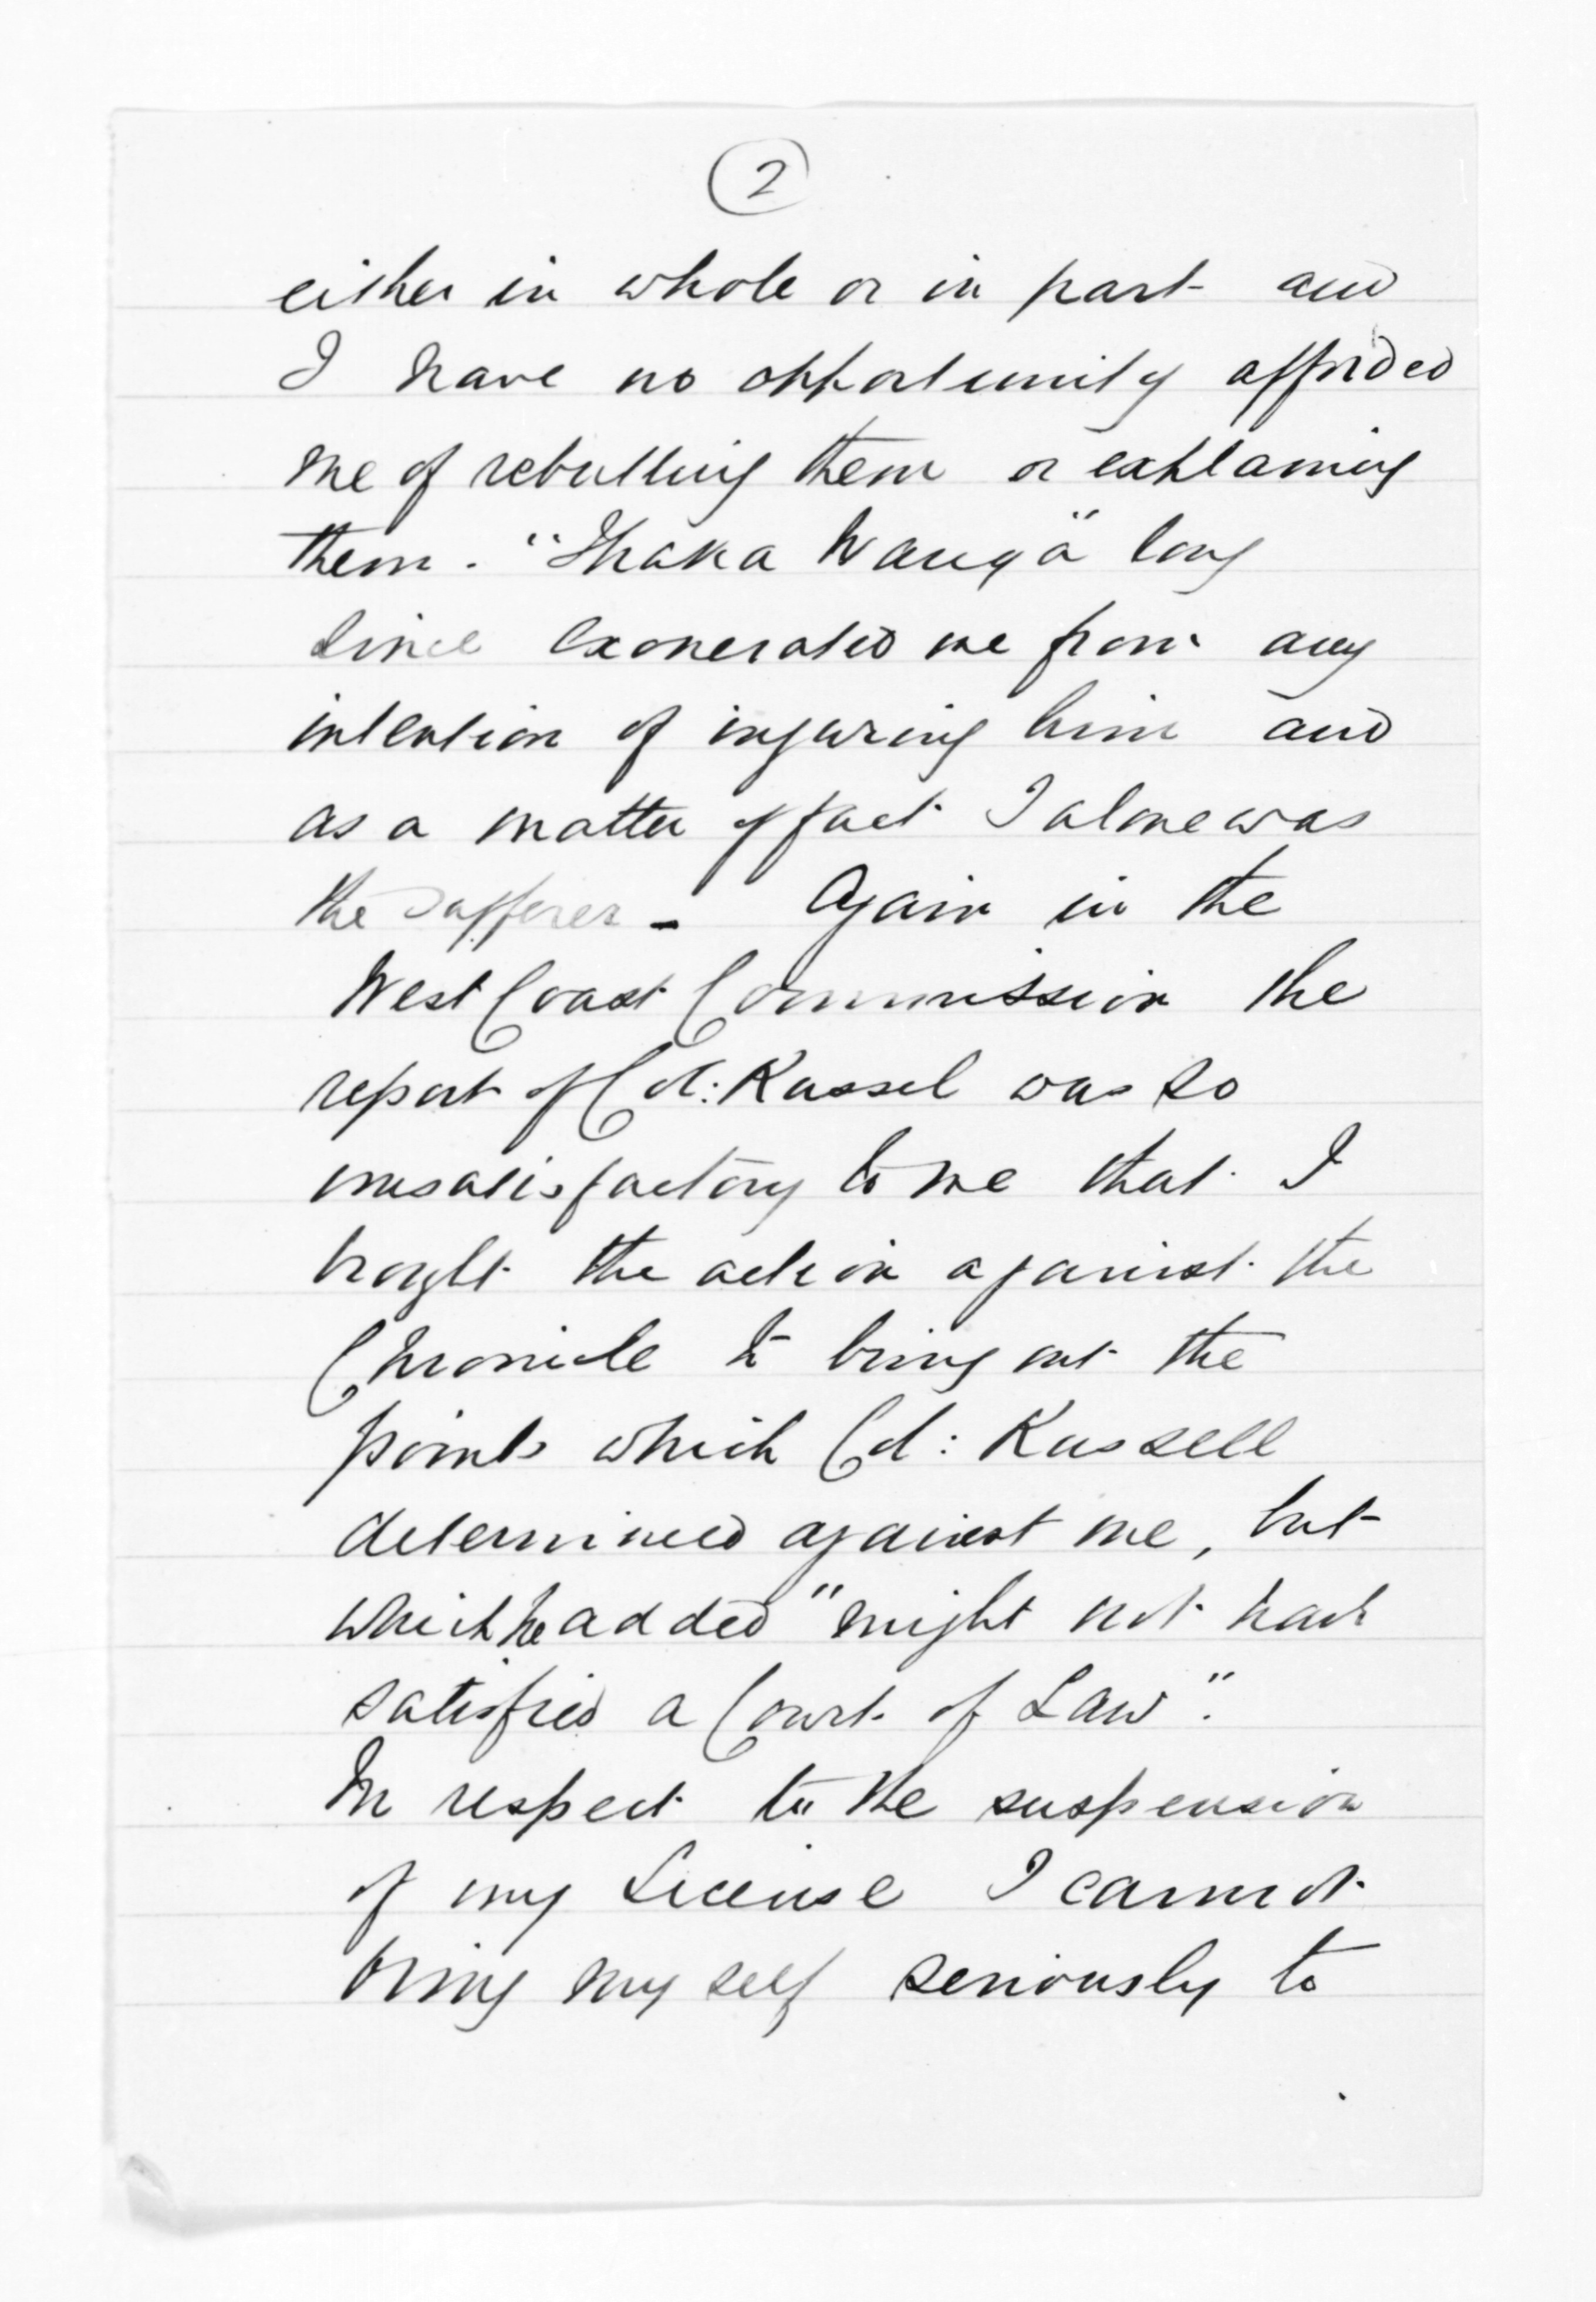 2
either in whole or in part and
I have no opportunity afforded
me of rebutting them or explaining
them. "Ihaka Wanga" long
since exonerated me from any
intention of injuring him and
as a matter of fact I alone was
the sufferer - Again in the
West Coast Commission the
report of Col: Russel was so
unsatisfactory to me that I
brought the action against the
Chronicle to bring out the
points which Col: Russell
determined against me, but
which he added "might not have
satisfied a Court of Law".
In respect to the suspension
of my License I cannot
bring myself seriously to